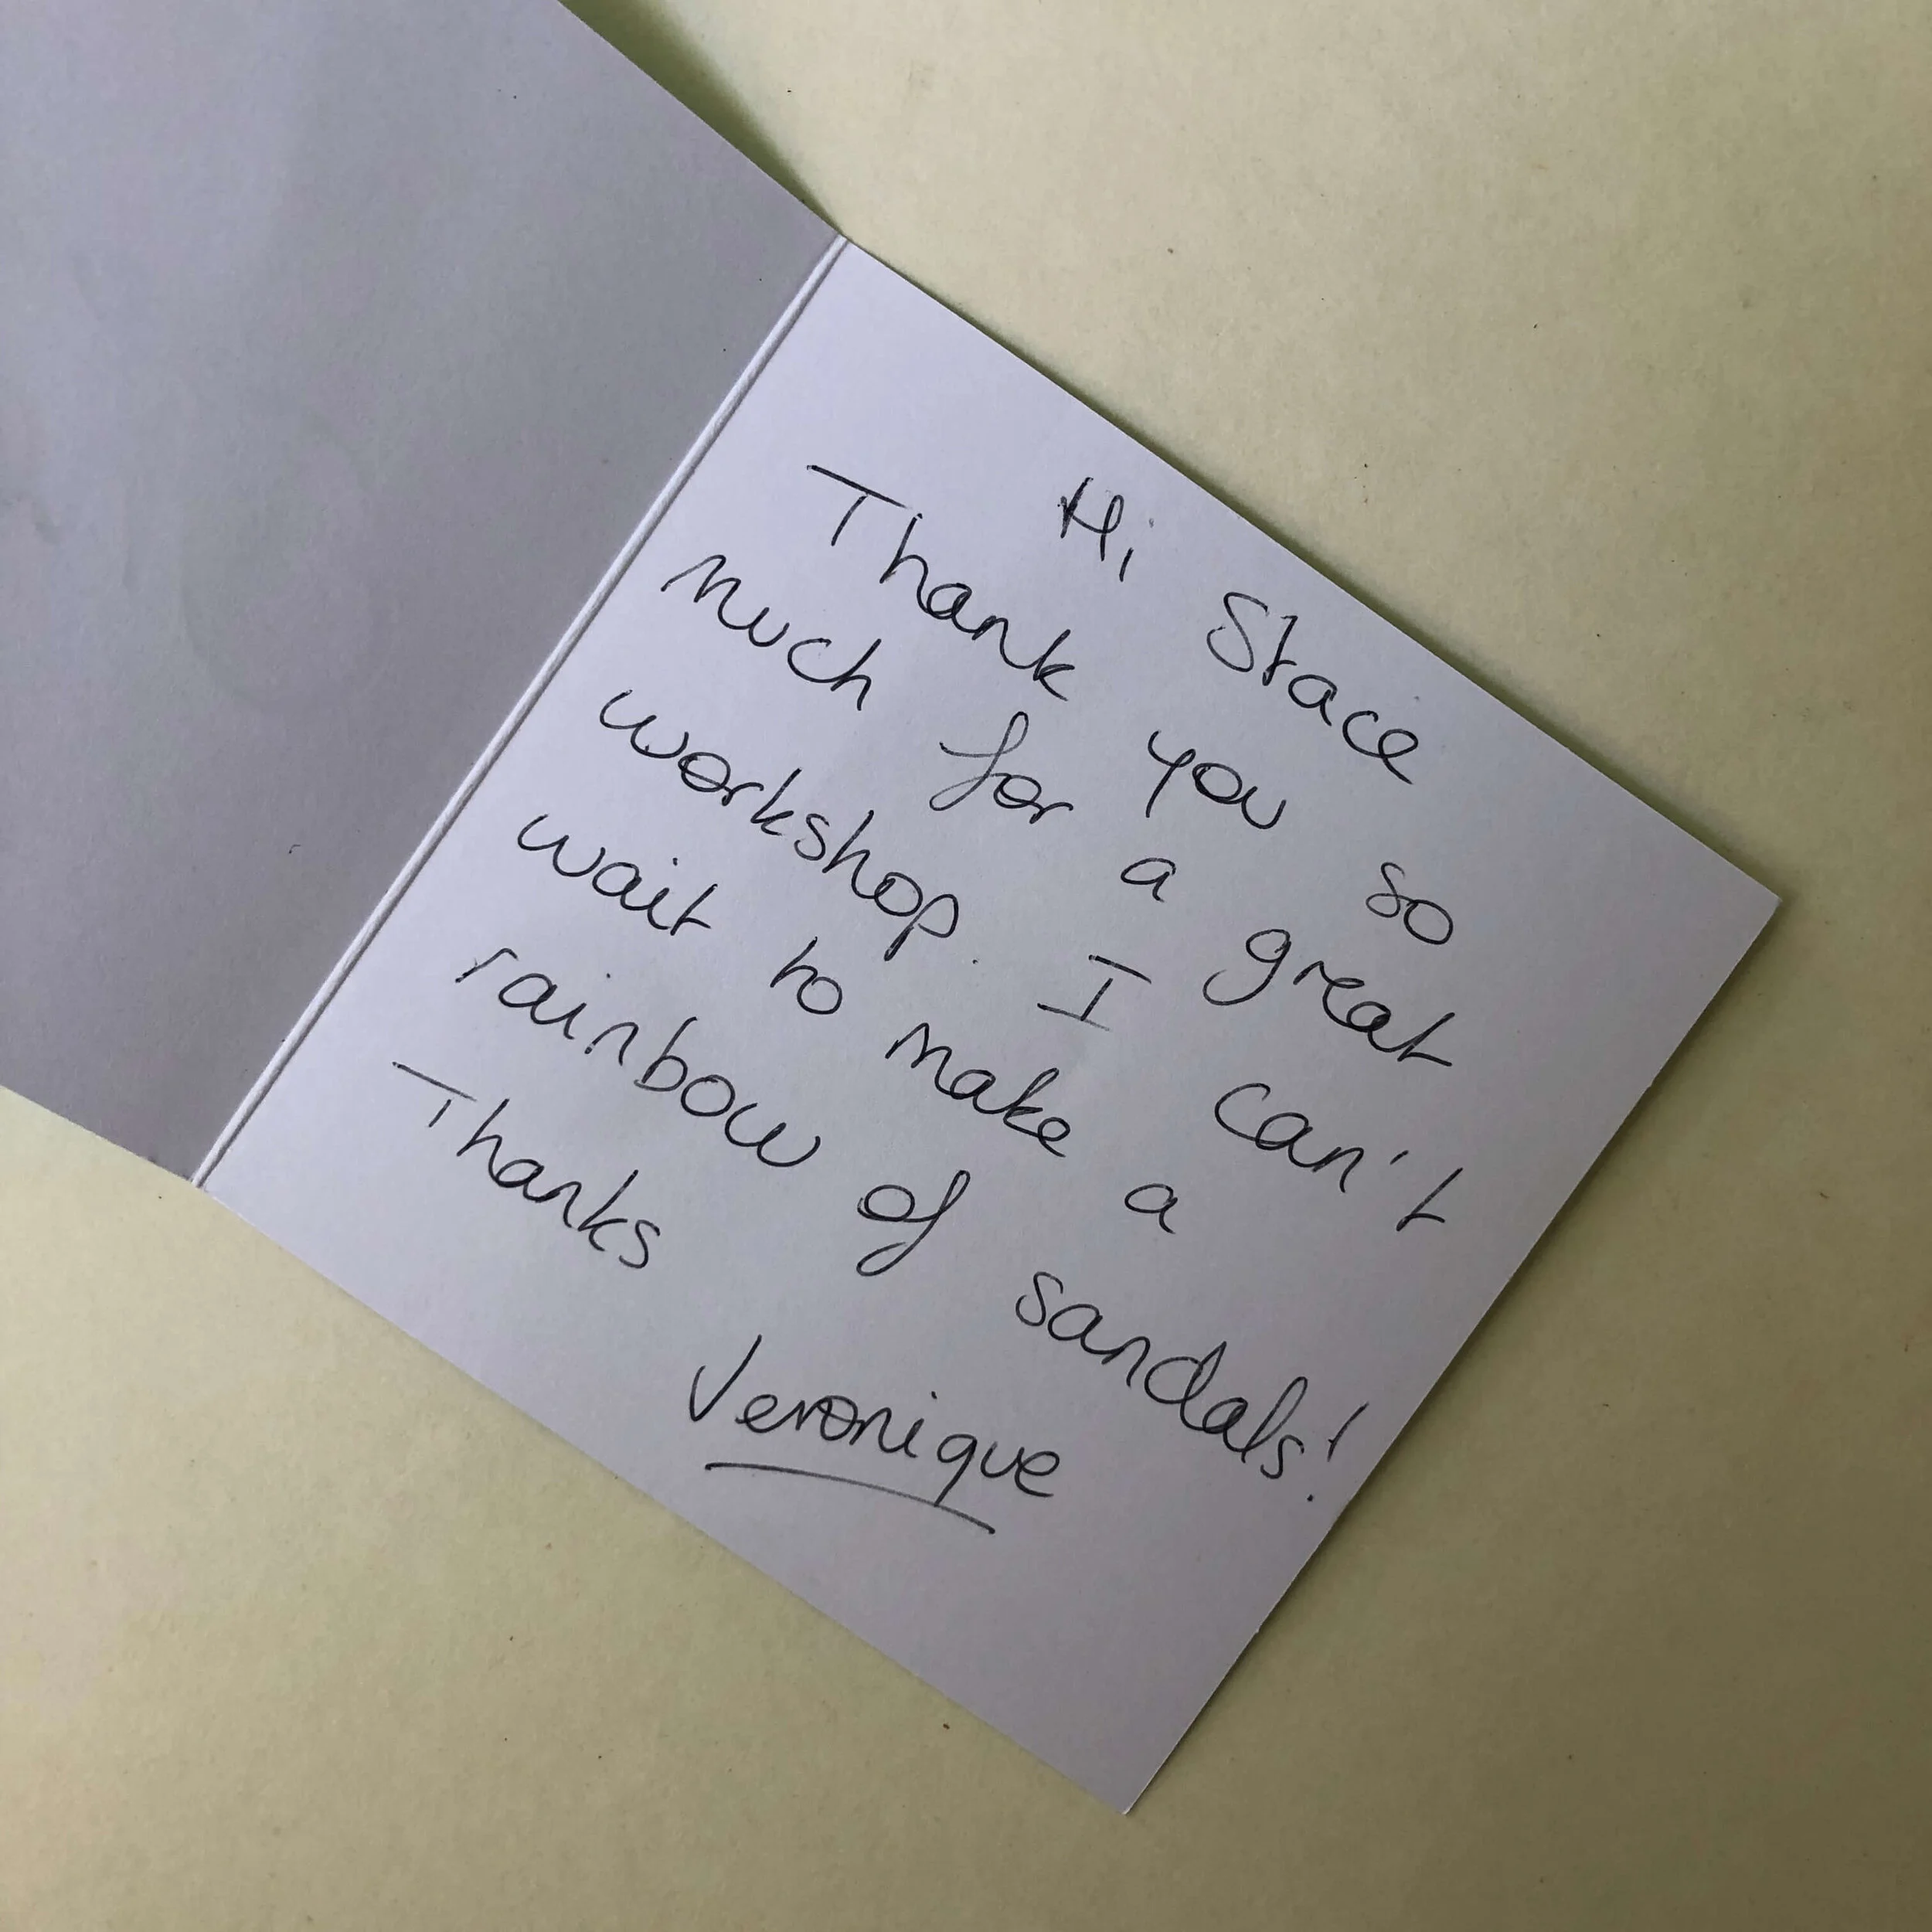 Hi Stace
Thank you so
much for a great
workshop. I can't
wait to make a
rainbow of sandals!
Thanks
Veronique